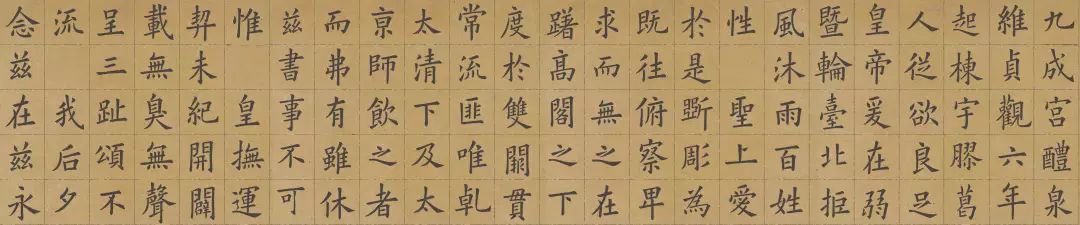 九成宮醴泉
維貞觀六年
起棟宇膠葛
人從欲良足
皇帝爰在弱
暨輪臺北拒
風沐雨百姓
性 聖上愛
於是斲彫為
既往俯察卑
求而無之在
躇髙閣之下
度於雙闕貫
常流匪唯乹
太清下及太
亰師飲之者
而弗有雖休
茲書事不可
惟 皇撫運
契未紀開闢
載無臭無聲
呈三趾頌不
流 我后夕
念茲在茲永